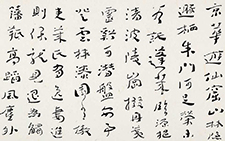 京華遊俠窟山林隱
遯栖朱門何足榮未
若託蓬萊臨源挹
清波陵崗掇丹荑
靈谿可潛盤安事
登雲梯漆園有傲
吏萊氏有逸妻進
則保龍見退為觸
藩羝高蹈風塵外